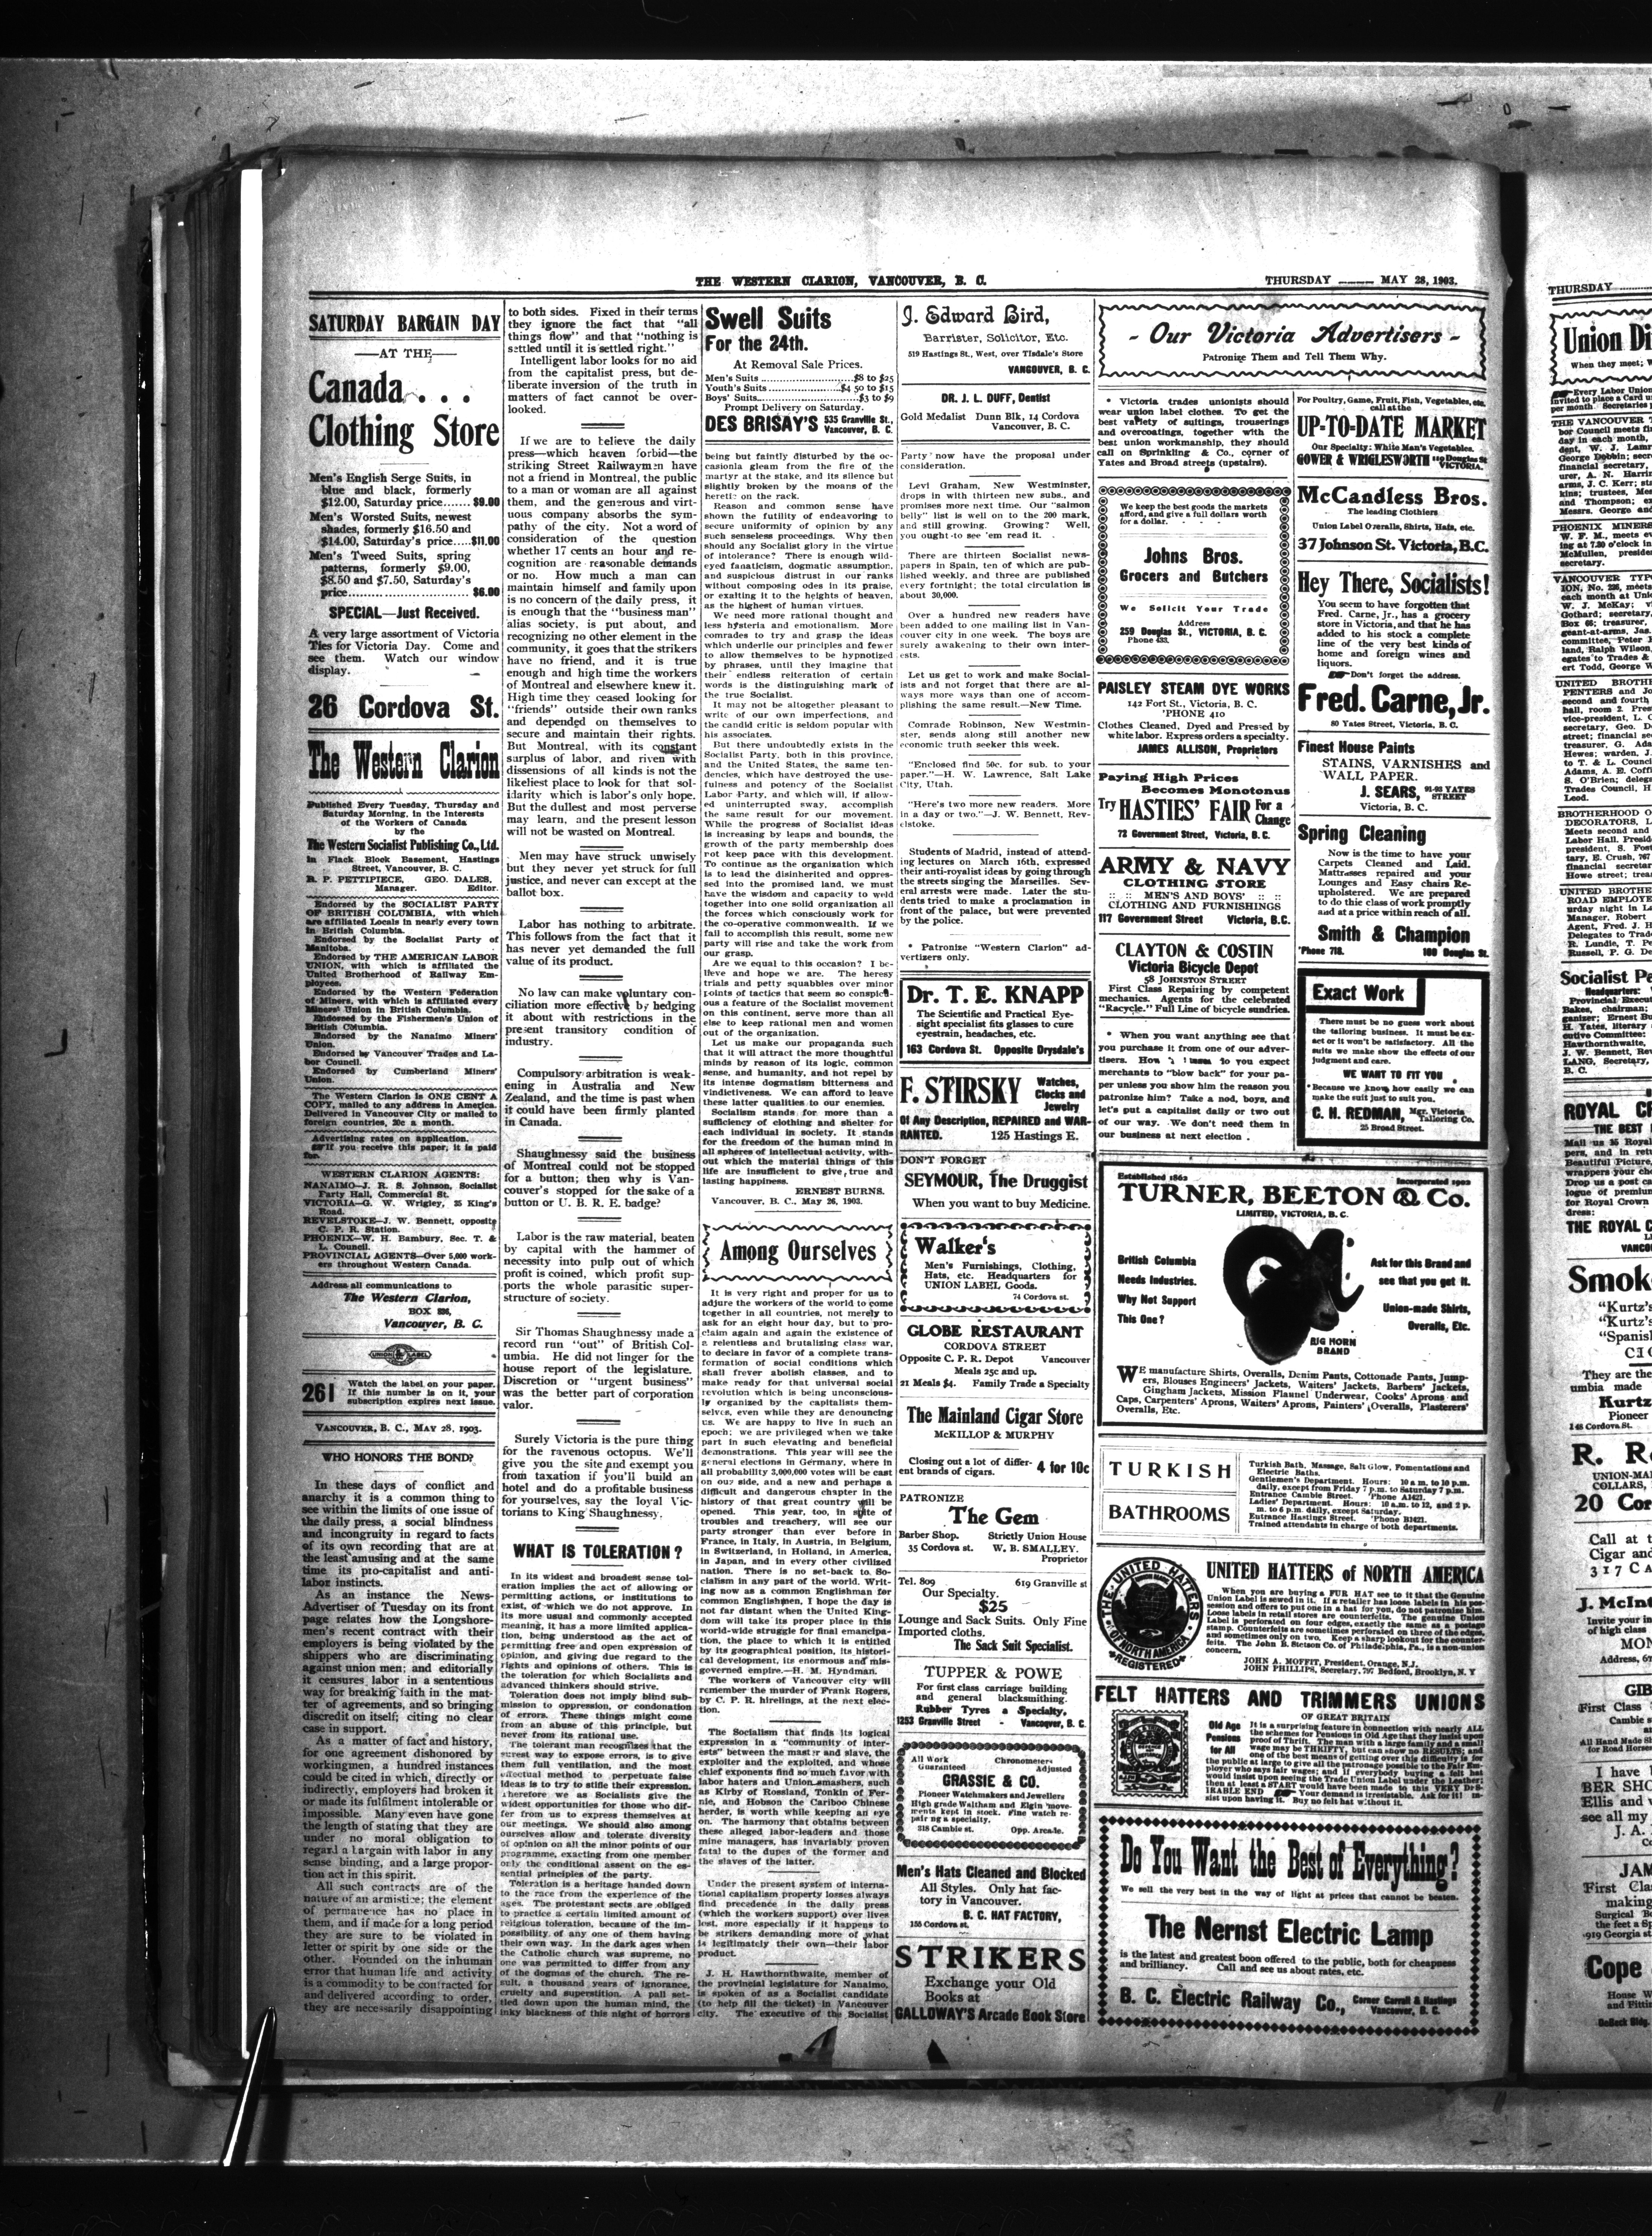 THE WESTERN CLARION, VANCOUVER, B. C.
THURSDAY ......... MAY 28, 1903.
SATURDAY BARGAIN DAY
—AT THE—
Canada . . .
Clothing Store
Men's English Serge Suits, in
blue and black, formerly
$12.00, Saturday price....... $9.00
Men's Worsted Suits, newest
shades, formerly $16.50 and
$14.00, Saturday's price.....$11.00
Men's Tweed Suits, spring
patterns, formerly $9.00,
$8.50 and $7.50, Saturday's
price.......................... $6.00
SPECIAL—Just Received.
A very large assortment of Victoria
Ties for Victoria Day. Come and
see them. Watch our window
display.
26 Cordova St.
The Western Clarion
Published Every Tuesday, Thursday and
Saturday Morning, in the Interests
of the Workers of Canada
by the
The Western Socialist Publishing Co., Ltd.
In Flack Block Basement, Hastings
Street, Vancouver, B. C.
R. P. PETTIPIECE, GEO. DALES,
Manager. Editor.
Endorsed by the SOCIALIST PARTY
OF BRITISH COLUMBIA, with which
are affiliated Locals in nearly every town
in British Columbia.
Endorsed by the Socialist Party of
Manitoba.
Endorsed by THE AMERICAN LABOR
UNION, with which is affiliated the
United Brotherhood of Railway Em-
ployees.
Endorsed by the Western Federation
of Miners, with which is affiliated every
Miners' Union in British Columbia.
Endorsed by the Fishermen's Union of
British Columbia.
Endorsed by the Nanaimo Miners'
Union.
Endorsed by Vancouver Trades and La-
bor Council.
Endorsed by Cumberland Miners'
Union.
The Western Clarion is ONE CENT A
COPY, mailed to any address in America.
Delivered in Vancouver City or mailed to
foreign countries, 20c a month.
Advertising rates on application.
If you receive this paper, it is paid
for.
WESTERN CLARION AGENTS:
NANAIMO—J. R. S. Johnson, Socialist
Party Hall, Commercial St.
VICTORIA—G. W. Wrigley, 35 King's
Road.
REVELSTOKE—J. W. Bennett, opposite
C. P. R. Station.
PHOENIX—W. H. Bambury, Sec. T. &
L. Council.
PROVINCIAL AGENTS—Over 5,000 work-
ers throughout Western Canada.
Address all communications to
The Western Clarion,
BOX 836,
Vancouver, B. C.
UNION LABEL
261
Watch the label on your paper.
If this number is on it, your
subscription expires next issue.
VANCOUVER, B. C., MAY 28, 1903.
WHO HONORS THE BOND?
In these days of conflict and
anarchy it is a common thing to
see within the limits of one issue of
the daily press, a social blindness
and incongruity in regard to facts
of its own recording that are at
the least amusing and at the same
time its pro-capitalist and anti-
labor instincts.
As an instance the News-
Advertiser of Tuesday on its front
page relates how the Longshore-
men's recent contract with their
employers is being violated by the
shippers who are discriminating
against union men; and editorially
it censures labor in a sententious
way for breaking faith in the mat-
ter of agreements, and so bringing
discredit on itself; citing no clear
case in support.
As a matter of fact and history,
for one agreement dishonored by
workingmen, a hundred instances
could be cited in which, directly or
indirectly, employers had broken it
or made its fulfilment intolerable or
impossible. Many even have gone
the length of stating that they are
under no moral obligation to
regard a bargain with labor in any
sense binding, and a large propor-
tion act in this spirit.
All such contracts are of the
nature of an armistice; the element
of permanence has no place in
them, and if made for a long period
they are sure to be violated in
letter or spirit by one side or the
other. Founded on the inhuman
error that human life and activity
is a commodity to be contracted for
and delivered according to order,
they are necessarily disappointing
to both sides. Fixed in their terms
they ignore the fact that "all
things flow" and that "nothing is
settled until it is settled right."
Intelligent labor looks for no aid
from the capitalist press, but de-
liberate inversion of the truth in
matters of fact cannot be over-
looked.
If we are to believe the daily
press—which heaven forbid—the
striking Street Railwaymen have
not a friend in Montreal, the public
to a man or woman are all against
them, and the generous and virt-
uous company absorbs the sym-
pathy of the city. Not a word of
consideration of the question
whether 17 cents an hour and re-
cognition are reasonable demands
or no. How much a man can
maintain himself and family upon
is no concern of the daily press, it
is enough that the "business man"
alias society, is put about, and
recognizing no other element in the
community, it goes that the strikers
have no friend, and it is true
enough and high time the workers
of Montreal and elsewhere knew it.
High time they ceased looking for
"friends" outside their own ranks
and depended on themselves to
secure and maintain their rights.
But Montreal, with its constant
surplus of labor, and riven with
dissensions of all kinds is not the
likeliest place to look for that sol-
idarity which is labor's only hope.
But the dullest and most perverse
may learn, and the present lesson
will not be wasted on Montreal.
Men may have struck unwisely
but they never yet struck for full
justice, and never can except at the
ballot box.
Labor has nothing to arbitrate.
This follows from the fact that it
has never yet demanded the full
value of its product.
No law can make voluntary con-
ciliation more effective by hedging
it about with restrictions in the
present transitory condition of
industry.
Compulsory arbitration is weak-
ening in Australia and New
Zealand, and the time is past when
it could have been firmly planted
in Canada.
Shaughnessy said the business
of Montreal could not be stopped
for a button; then why is Van-
couver's stopped for the sake of a
button or U. B. R. E. badge?
Labor is the raw material, beaten
by capital with the hammer of
necessity into pulp out of which
profit is coined, which profit sup-
ports the whole parasitic super-
structure of society.
Sir Thomas Shaughnessy made a
record run "out" of British Col-
umbia. He did not linger for the
house report of the legislature.
Discretion or "urgent business"
was the better part of corporation
valor.
Surely Victoria is the pure thing
for the ravenous octopus. We'll
give you the site and exempt you
from taxation if you'll build an
hotel and do a profitable business
for yourselves, say the loyal Vic-
torians to King Shaughnessy.
WHAT IS TOLERATION?
In its widest and broadest sense tol-
eration implies the act of allowing or
permitting actions, or institutions to
exist, of which we do not approve. In
its more usual and commonly accepted
meaning, it has a more limited applica-
tion, being understood as the act of
permitting free and open expression of
opinion, and giving due regard to the
rights and opinions of others. This is
the toleration for which Socialists and
advanced thinkers should strive.
Toleration does not imply blind sub-
mission to oppression, or condonation
of errors. These things might come
from an abuse of this principle, but
never from its rational use.
The tolerant man recognizes that the
surest way to expose errors, is to give
them full ventilation, and the most
effectual method to perpetuate false
ideas is to try to stifle their expression.
Therefore we as Socialists give the
widest opportunities for those who dif-
fer from us to express themselves at
our meetings. We should also among
ourselves allow and tolerate diversity
of opinion on all the minor points of our
programme, exacting from one member
only the conditional assent on the es-
sential principles of the party.
Toleration is a heritage handed down
to the race from the experience of the
ages. The protestant sects are obliged
to practice a certain limited amount of
religious toleration, because of the im-
possibility of any one of them having
their own way. In the dark ages when
the Catholic church was supreme, no
one was permitted to differ from any
of the dogmas of the church. The re-
sult, a thousand years of ignorance,
cruelty and superstition. A pall set-
tled down upon the human mind, the
inky blackness of this night of horrors
Swell Suits
For the 24th.
At Removal Sale Prices.
Men's Suits ..........................$8 to $25
Youth's Suits ....................$4 50 to $15
Boys' Suits.............................$3 to $9
Prompt Delivery on Saturday.
DES BRISAY'S 535 Granville St.,
Vancouver, B. C.
being but faintly disturbed by the oc-
casionla gleam from the fire of the
martyr at the stake, and its silence but
slightly broken by the moans of the
heretic on the rack.
Reason and common sense have
shown the futility of endeavoring to
secure uniformity of opinion by any
such senseless proceedings. Why then
should any Socialist glory in the virtue
of intolerance? There is enough wild-
eyed fanaticism, dogmatic assumption,
and suspicious distrust in our ranks
without composing odes in its praise,
or exalting it to the heights of heaven,
as the highest of human virtues.
We need more rational thought and
less hysteria and emotionalism. More
comrades to try and grasp the ideas
which underlie our principles and fewer
to allow themselves to be hypnotized
by phrases, until they imagine that
their endless reiteration of certain
words is the distinguishing mark of
the true Socialist.
It may not be altogether pleasant to
write of our own imperfections, and
the candid critic is seldom popular with
his associates.
But there undoubtedly exists in the
Socialist Party, both in this province,
and the United States, the same ten-
dencies, which have destroyed the use-
fulness and potency of the Socialist
Labor Party, and which will, if allow-
ed uninterrupted sway, accomplish
the same result for our movement.
While the progress of Socialist ideas
is increasing by leaps and bounds, the
growth of the party membership does
not keep pace with this development.
To continue as the organization which
is to lead the disinherited and oppres-
sed into the promised land, we must
have the wisdom and capacity to weld
together into one solid organization all
the forces which consciously work for
the co-operative commonwealth. If we
fail to accomplish this result, some new
party will rise and take the work from
our grasp.
Are we equal to this occasion? I be-
lieve and hope we are. The heresy
trials and petty squabbles over minor
points of tactics that seem so conspicu-
ous a feature of the Socialist movement
on this continent, serve more than all
else to keep rational men and women
out of the organization.
Let us make our propaganda such
that it will attract the more thoughtful
minds by reason of its logic, common
sense, and humanity, and not repel by
its intense dogmatism bitterness and
vindictiveness. We can afford to leave
these latter qualities to our enemies.
Socialism stands for more than a
sufficiency of clothing and shelter for
each individual in society. It stands
for the freedom of the human mind in
all spheres of intellectual activity, with-
out which the material things of this
life are insufficient to give true and
lasting happiness.
ERNEST BURNS.
Vancouver, B. C., May 26, 1903.
Among Ourselves
It is very right and proper for us to
adjure the workers of the world to come
together in all countries, not merely to
ask for an eight hour day, but to pro-
claim again and again the existence of
a relentless and brutalizing class war,
to declare in favor of a complete trans-
formation of social conditions which
shall frever abolish classes, and to
make ready for that universal social
revolution which is being unconscious-
ly organized by the capitalists them-
selves, even while they are denouncing
us. We are happy to live in such an
epoch; we are privileged when we take
part in such elevating and beneficial
demonstrations. This year will see the
general elections in Germany, where in
all probability 3,000,000 votes will be cast
on our side, and a new and perhaps a
difficult and dangerous chapter in the
history of that great country will be
opened. This year, too, in spite of
troubles and treachery, will see our
party stronger than ever before in
France, in Italy, in Austria, in Belgium,
in Switzerland, in Holland, in America,
in Japan, and in every other civilized
nation. There is no set-back to So-
cialism in any part of the world. Writ-
ing now as a common Englishman for
common Englishmen, I hope the day is
not far distant when the United King-
dom will take its proper place in this
world-wide struggle for final emancipa-
tion, the place to which it is entitled
by its geographical position, its histori-
cal development, its enormous and mis-
governed empire.—H. M. Hyndman.
The workers of Vancouver city will
remember the murder of Frank Rogers,
by C. P. R. hirelings, at the next elec-
tion.
The Socialism that finds its logical
expression in a "community of inter-
ests" between the master and slave, the
exploiter and the exploited, and whose
chief exponents find so much favor with
labor haters and Union smashers, such
as Kirby of Rossland, Tonkin of Fer-
nie, and Hobson the Cariboo Chinese
herder, is worth while keeping an eye
on. The harmony that obtains between
these alleged labor-leaders and those
mine managers, has invariably proven
fatal to the dupes of the former and
the slaves of the latter.
Under the present system of interna-
tional capitalism property losses always
find precedence in the daily press
(which the workers support) over lives
lost, more especially if it happens to
be strikers demanding more of what
is legitimately their own—their labor
product.
J. H. Hawthornthwaite, member of
the provincial legislature for Nanaimo,
is spoken of as a Socialist candidate
(to help fill the ticket) in Vancouver
city. The executive of the Socialist
J. Edward Bird,
Barrister, Solicitor, Etc.
519 Hastings St., West, over Tisdale's Store
VANCOUVER, B. C.
DR. J. L. DUFF, Dentist
Gold Medalist Dunn Blk, 14 Cordova
Vancouver, B. C.
Party now have the proposal under
consideration.
Levi Graham, New Westminster,
drops in with thirteen new subs., and
promises more next time. Our "salmon
belly" list is well on to the 200 mark,
and still growing. Growing? Well,
you ought to see 'em read it.
There are thirteen Socialist news-
papers in Spain, ten of which are pub-
lished weekly, and three are published
every fortnight; the total circulation is
about 30,000.
Over a hundred new readers have
been added to one mailing list in Van-
couver city in one week. The boys are
surely awakening to their own inter-
ests.
Let us get to work and make Social-
ists and not forget that there are al-
ways more ways than one of accom-
plishing the same result.—New Time.
Comrade Robinson, New Westmin-
ster, sends along still another new
economic truth seeker this week.
"Enclosed find 50c. for sub. to your
paper."—H. W. Lawrence, Salt Lake
City, Utah.
"Here's two more new readers. More
in a day or two."—J. W. Bennett, Rev-
elstoke.
Students of Madrid, instead of attend-
ing lectures on March 16th, expressed
their anti-royalist ideas by going through
the streets singing the Marseilles. Sev-
eral arrests were made. Later the stu-
dents tried to make a proclamation in
front of the palace, but were prevented
by the police.
* Patronize "Western Clarion" ad-
vertizers only.
Dr. T. E. KNAPP
The Scientific and Practical Eye-
sight specialist fits glasses to cure
eyestrain, headaches, etc.
163 Cordova St. Opposite Drysdale's
F. STIRSKY Watches,
Clocks and
Jewelry
Of Any Description, REPAIRED and WAR-
RANTED. 125 Hastings E.
DON'T FORGET
SEYMOUR, The Druggist
When you want to buy Medicine.
Walker's
Men's Furnishings, Clothing,
Hats, etc. Headquarters for
UNION LABEL Goods.
74 Cordova st.
GLOBE RESTAURANT
CORDOVA STREET
Opposite C. P. R. Depot Vancouver
Meals 25c and up.
21 Meals $4. Family Trade a Specialty
The Mainland Cigar Store
McKILLOP & MURPHY
Closing out a lot of differ-
ent brands of cigars. 4 for 10c
PATRONIZE
The Gem
Barber Shop. Strictly Union House
35 Cordova st. W. B. SMALLEY.
Proprietor
Tel. 809 619 Granville st
Our Specialty.
$25
Lounge and Sack Suits. Only Fine
Imported cloths.
The Sack Suit Specialist.
TUPPER & POWE
For first class carriage building
and general blacksmithing.
Rubber Tyres a Specialty.
1253 Granville Street - Vancouver, B. C.
All Work Chronometers
Guaranteed Adjusted
GRASSIE & CO.
Pioneer Watchmakers and Jewellers
High grade Waltham and Elgin move-
ments kept in stock. Fine watch re-
pairing a specialty.
318 Cambie st. Opp. Arcade.
Men's Hats Cleaned and Blocked
All Styles. Only hat fac-
tory in Vancouver.
B. C. HAT FACTORY,
155 Cordova st.
STRIKERS
Exchange your Old
Books at
GALLOWAY'S Arcade Book Store
- Our Victoria Advertisers -
Patronize Them and Tell Them Why.
* Victoria trades unionists should
wear union label clothes. To get the
best variety of suitings, trouserings
and overcoatings, together with the
best union workmanship, they should
call on Sprinkling & Co., corner of
Yates and Broad streets (upstairs).
We keep the best goods the markets
afford, and give a full dollars worth
for a dollar.
Johns Bros.
Grocers and Butchers
We Solicit Your Trade
Address
259 Douglas St., VICTORIA, B. C.
Phone 433.
PAISLEY STEAM DYE WORKS
142 Fort St., Victoria, B. C.
'PHONE 410
Clothes Cleaned, Dyed and Pressed by
white labor. Express orders a specialty.
JAMES ALLISON, Proprietors
Paying High Prices
Becomes Monotonus
Try HASTIES' FAIR For a
Change
72 Government Street, Victoria, B. C.
ARMY & NAVY
CLOTHING STORE
:: :: MEN'S AND BOYS' :: ::
CLOTHING AND FURNISHINGS
117 Government Street Victoria, B.C.
CLAYTON & COSTIN
Victoria Bicycle Depot
58 JOHNSTON STREET
First Class Repairing by competent
mechanics. Agents for the celebrated
"Racycle." Full Line of bicycle sundries.
* When you want anything see that
you purchase it from one of our adver-
tisers. How to you expect
merchants to "blow back" for your pa-
per unless you show him the reason you
patronize him? Take a nod, boys, and
let's put a capitalist daily or two out
of our way. We don't need them in
our business at next election .
For Poultry, Game, Fruit, Fish, Vegetables, etc.
call at the
UP-TO-DATE MARKET
Our Specialty: White Man's Vegetables.
GOWER & WRIGLESWORTH 119 Douglas St
VICTORIA.
McCandless Bros.
The leading Clothiers
Union Label Overalls, Shirts, Hats, etc.
37 Johnson St. Victoria, B.C.
Hey There, Socialists!
You seem to have forgotten that
Fred. Carne, Jr., has a grocery
store in Victoria, and that he has
added to his stock a complete
line of the very best kinds of
home and foreign wines and
liquors.
Don't forget the address.
Fred. Carne, Jr.
80 Yates Street, Victoria, B. C.
Finest House Paints
STAINS, VARNISHES and
WALL PAPER.
J. SEARS, 91-93 YATES
STREET
Victoria, B. C.
Spring Cleaning
Now is the time to have your
Carpets Cleaned and Laid.
Mattrasses repaired and your
Lounges and Easy chairs Re-
upholstered. We are prepared
to do this class of work promptly
and at a price within reach of all.
Smith & Champion
'Phone 718. 100 Douglas St.
Exact Work
There must be no guess work about
the tailoring business. It must be ex-
act or it won't be satisfactory. All the
suits we make show the effects of our
judgment and care.
WE WANT TO FIT YOU
Because we know how easily we can
make the suit just to suit you.
C. H. REDMAN, Mgr. Victoria
Tailoring Co.
25 Broad Street.
Established 1862 Incorporated 1902
TURNER, BEETON & Co.
LIMITED, VICTORIA, B. C.
British Columbia
Needs Industries.
Why Not Support
This One?
Ask for this Brand and
see that you get it.
Union-made Shirts,
Overalls, Etc.
BIG HORN
BRAND
WE manufacture Shirts, Overalls, Denim Pants, Cottonade Pants, Jump-
ers, Blouses Engineers' Jackets, Waiters' Jackets, Barbers' Jackets,
Gingham Jackets, Mission Flannel Underwear, Cooks' Aprons and
Caps, Carpenters' Aprons, Waiters' Aprons, Painters' Overalls, Plasterers'
Overalls, Etc.
TURKISH
BATHROOMS
Turkish Bath, Massage, Salt Glow, Fomentations and
Electric Baths.
Gentlemen's Department. Hours: 10 a.m. to 10 p.m.
daily, except from Friday 7 p.m. to Saturday 7 p.m.
Entrance Cambie Street. 'Phone A1421.
Ladies' Department. Hours: 10 a.m. to 12, and 2 p.
m. to 6 p.m. daily, except Saturday.
Entrance Hastings Street. 'Phone B1421.
Trained attendants in charge of both departments.
THE UNITED HATTERS
OF NORTH AMERICA
REGISTERED
UNITED HATTERS of NORTH AMERICA
When you are buying a FUR HAT see to it that the Genuine
Union Label is sewed in it. If a retailer has loose labels in his pos-
session and offers to put one in a hat for you, do not patronise him.
Loose labels in retail stores are counterfeits. The genuine Union
Label is perforated on four edges, exactly the same as a postage
stamp. Counterfeits are sometimes perforated on three of the edges,
and sometimes only on two. Keep a sharp lookout for the counter-
feits. The John B. Stetson Co. of Philadelphia, Pa., is a non-union
concern.
JOHN A. MOFFIT, President, Orange, N.J.
JOHN PHILLIPS, Secretary, 797 Bedford, Brooklyn, N. Y
FELT HATTERS AND TRIMMERS UNIONS
OF GREAT BRITAIN
Old Age
Pensions
for All
It is a surprising feature in connection with nearly ALL
the schemes for Pensions in Old Age that they insist upon
proof of Thrift. The man with a large family and a small
wage may be THRIFTY, but can show no RESULTS; and
one of the best means of getting over this difficulty is for
the public at large to give all the patronage possible to the Fair Em-
ployer who pays fair wages; and if everybody buying a felt hat
would insist upon seeing the Trade Union Label under the Leather;
then at least a START would have been made to this VERY DES-
IRABLE END Your demand is irresistable. Ask for it! in-
sist upon having it. Buy no felt hat without it.
Do You Want the Best of Everything?
We sell the very best in the way of light at prices that cannot be beaten.
The Nernst Electric Lamp
is the latest and greatest boon offered to the public, both for cheapness
and brilliancy. Call and see us about rates, etc.
B. C. Electric Railway Co., Corner Carrall & Hastings
Vancouver, B. C.
THURSDAY
Union Di
When they meet; W
Every Labor Union
invited to place a Card u
per month. Secretaries
THE VANCOUVER T
bor Council meets fi
day in each month,
dent, W. J. Lamr
George Dobbin; secr
financial secretary,
urer, A. N. Harri
arms, J. C. Kerr; sta
kins; trustees, Mes
and Thompson; ex
Messrs. George and
PHOENIX MINERS
W. F. M., meets ev
ing at 7.30 o'clock in
McMullen, preside
secretary.
VANCOUVER TYPO
ION, No. 226, meets
each month at Unio
W. J. McKay; v
Gothard; secretary,
Box 66; treasurer,
geant-at-arms, Jas.
committee, Peter
land, Ralph Wilson,
egates to Trades &
ert Todd, George W
UNITED BROTHE
PENTERS and Jo
second and fourth
hall, room 2. Pres
vice-president, L. C
secretary, Geo. D
street; financial se
treasurer, G. Ada
Hewes; warden, J.
to T. & L. Counci
Adams, A. E. Coffi
S. O'Brien; delega
Trades Council, H
Leod.
BROTHERHOOD O
DECORATORS, L
Meets second and
Labor Hall. Presid
president, S. Post
tary, E. Crush, 767
financial secretar
Howe street; trea
UNITED BROTHE
ROAD EMPLOYE
urday night in La
Manager, Robert
Agent, Fred. J. H
Delegates to Trad
R. Lundie, T. Pe
Russell, P. G. De
Socialist Pa
Headquarters:
Provincial Execu
Bakes, chairman;
ganizer; Ernest Bu
H. Yates, literary
cutive Committee:
Hawthornthwaite,
J. W. Bennett, Rev
LANG, Secretary,
B. C.
ROYAL CR
THE BEST
Mail us 25 Royal
pers, and in retu
Beautiful Picture,
wrappers your cho
Drop us a post ca
logue of premium
for Royal Crown
dress:
THE ROYAL C
VANCO
Smok
"Kurtz's
"Kurtz's
"Spanis
CIG
They are the
umbia made
Kurtz
Pioneer
148 Cordova St.
R. R
UNION-MA
COLLARS,
20 Cor
Call at t
Cigar and
317 CA
J. McInt
Invite your in
of high class
MON
Address, 67
GIB
First Class
Cambie s
All Hand Made Sh
for Road Horses
I have
BER SHO
Ellis and
see all my
J. A.
JAM
First Clas
making
Surgical Bo
the feet a Sp
919 Georgia st
Cope
House W
and Fitti
DeBeck Bldg.